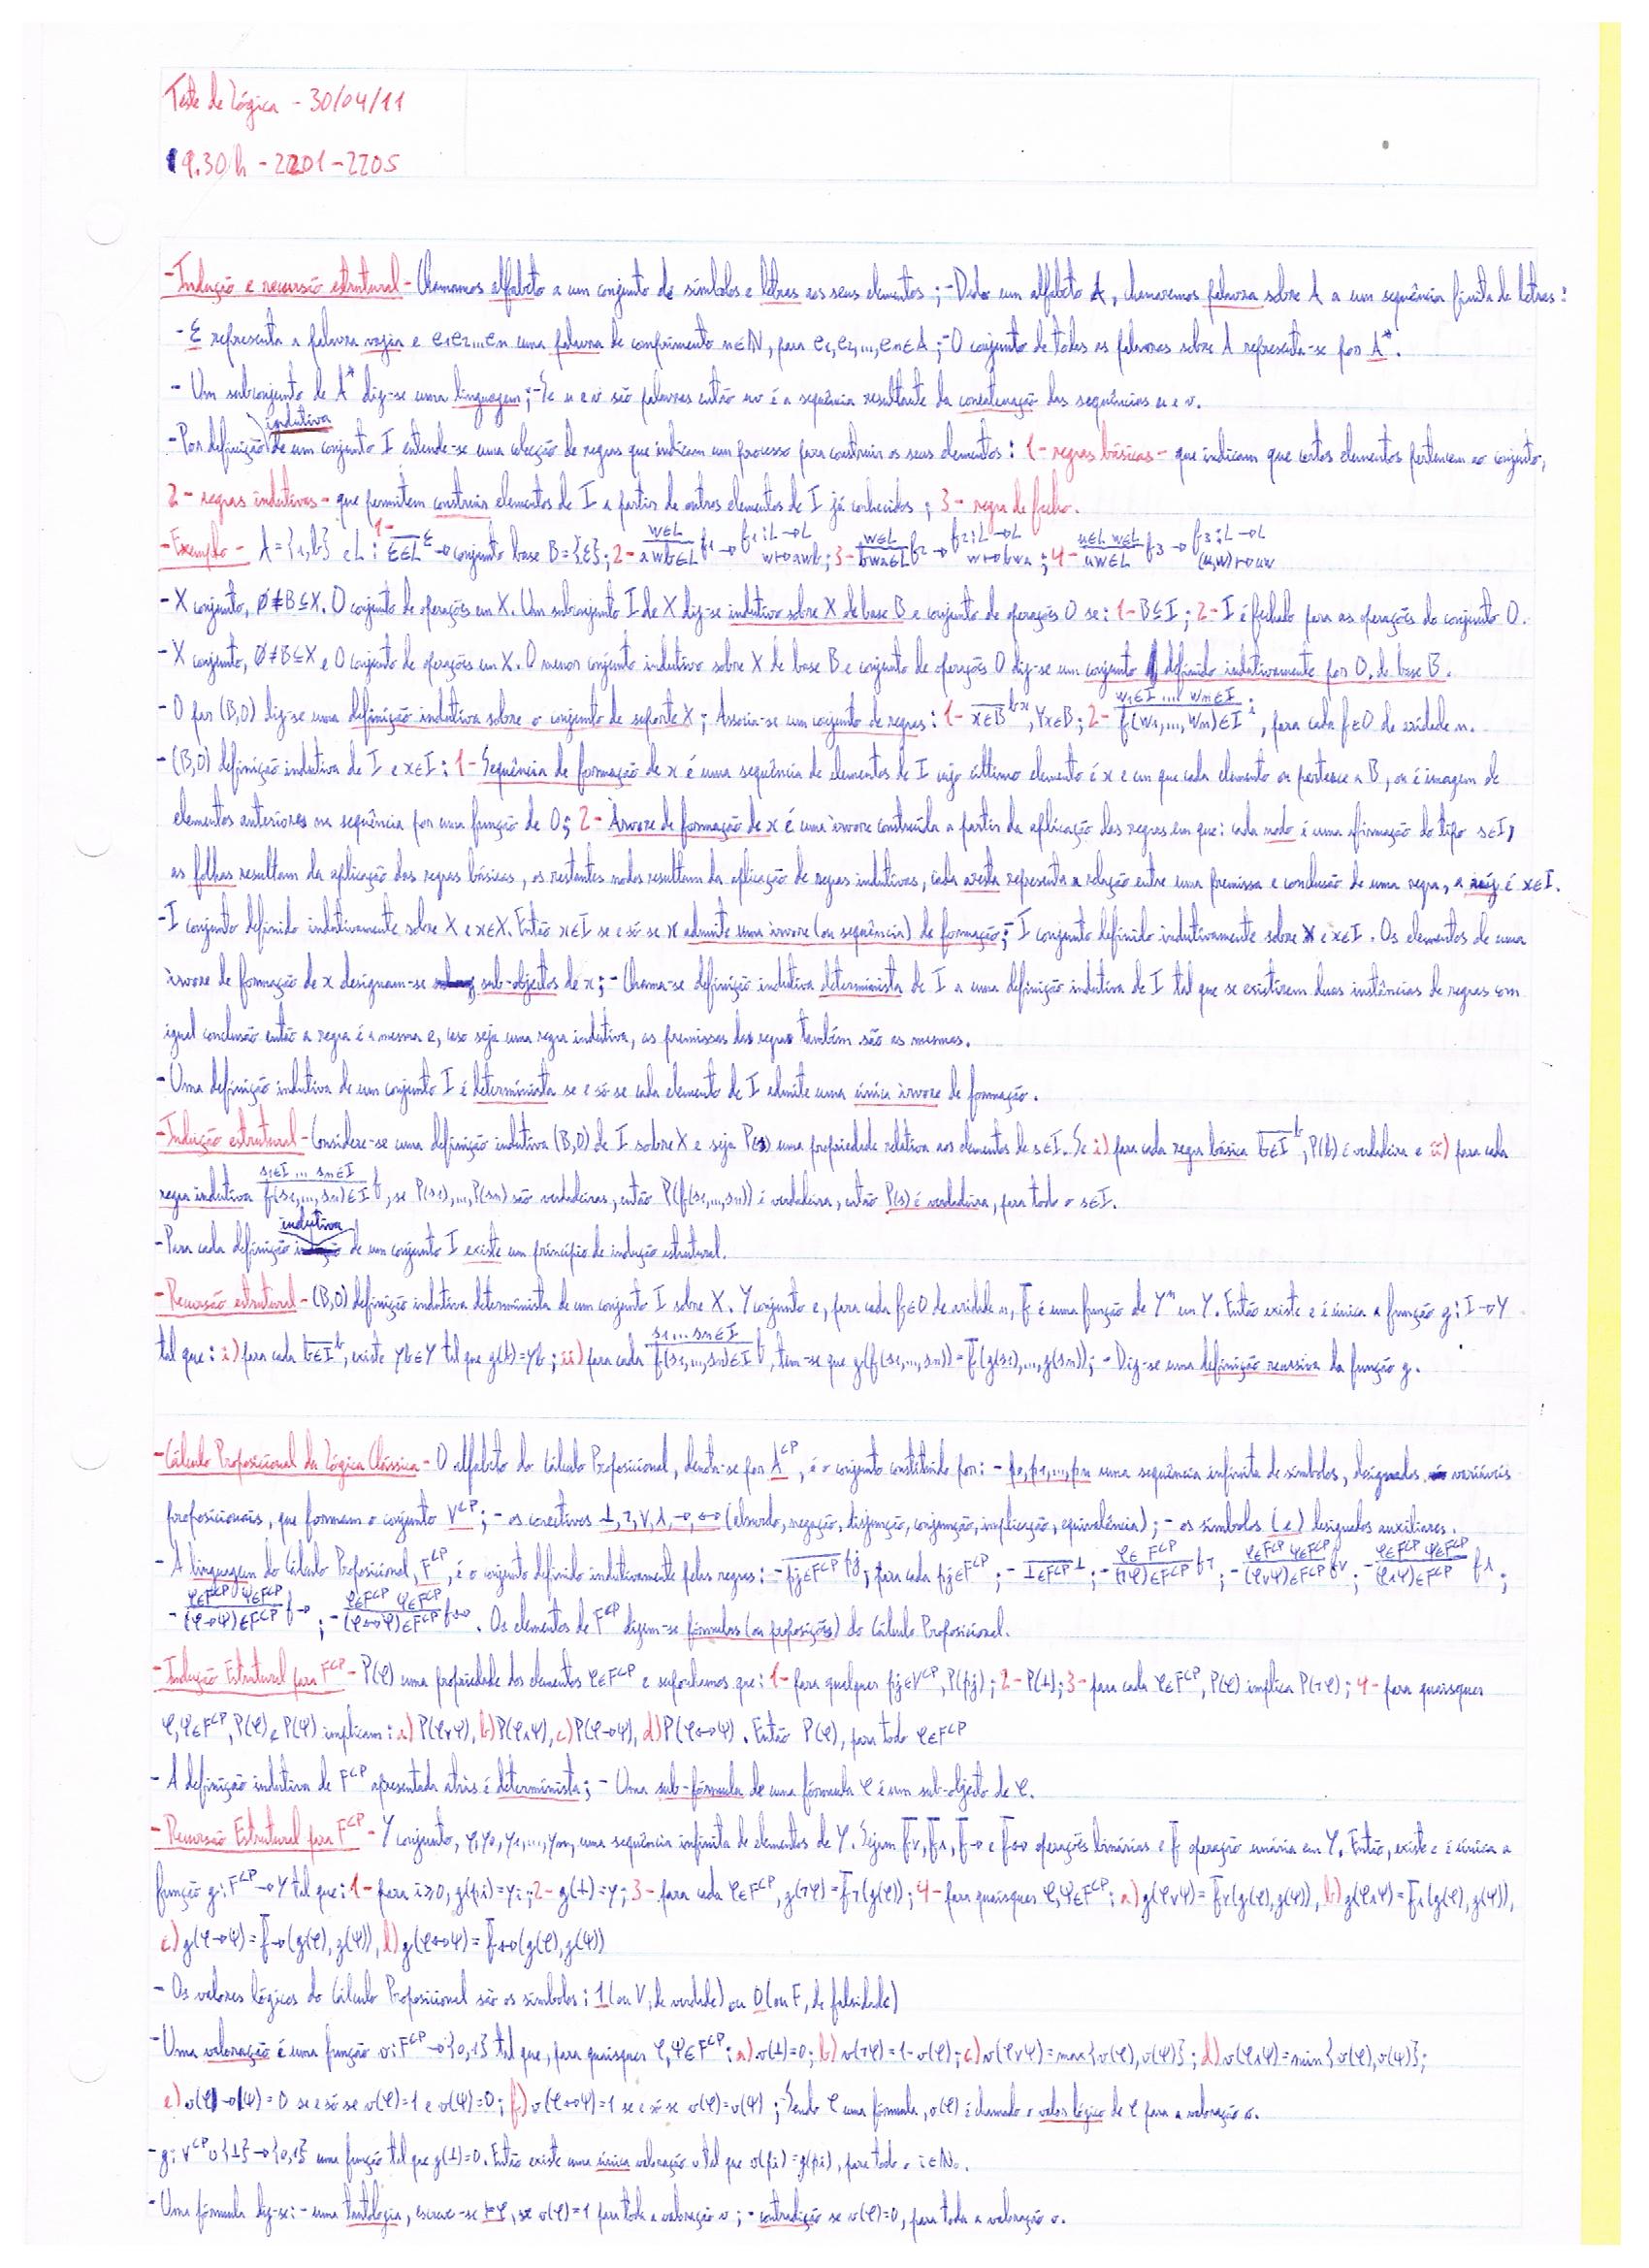 Teste de Lógica - 30/04/11
9.30h - 2201-2205
- Indução e recursão estrutural - Chamamos alfabeto a um conjunto de símbolos e letras aos seus elementos; - Dado um alfabeto A, chamaremos palavra sobre A a um sequência finita de letras:
- Ɛ representa a palavra vazia e e1e2...en uma palavra de comprimento n∈ℕ, para e1,e2,...,en∈A; - O conjunto de todas as palavras sobre A representa-se por A*.
- Um subconjunto de A* diz-se uma linguagem; - Se u e v são palavras então uv é a sequência resultante da concatenação das sequências u e v.
indutiva
- Por definição de um conjunto I entende-se uma colecção de regras que indicam um processo para construir os seus elementos: 1- regras básicas - que indicam que certos elementos pertencem ao conjunto,
2- regras indutivas - que permitem construir elementos de I a partir de outros elementos de I já conhecidos; 3- regra de fecho.
- Exemplo - A={a,b} e L: 1- ‾Ɛ∈L‾ Ɛ → conjunto base B={Ɛ}; 2- w∈L / awb∈L f1 → f1:L→L w↦awb; 3- w∈L / bwa∈L f2 → f2:L→L w↦bwa; 4- u∈L w∈L / uw∈L f3 → f3:L→L (u,w)↦uw
- X conjunto, ∅≠B⊆X. O conjunto de operações em X. Um subconjunto I de X diz-se indutivo sobre X de base B e conjunto de operações O se: 1- B⊆I; 2- I é fechado para as operações do conjunto O.
- X conjunto, ∅≠B⊆X e O conjunto de operações em X. O menor conjunto indutivo sobre X de base B e conjunto de operações O diz-se um conjunto definido indutivamente por O, de base B.
- O par (B,O) diz-se uma definição indutiva sobre o conjunto de suporte X; Associa-se um conjunto de regras: 1- x∈B bx, ∀x∈B; 2- w1∈I ... wn∈I / f(w1,...,wn)∈I i, para cada f∈O de aridade n.
- (B,O) definição indutiva de I e x∈I: 1- Sequência de formação de x é uma sequência de elementos de I cujo último elemento é x e em que cada elemento ou pertence a B, ou é imagem de
elementos anteriores na sequência por uma função de O; 2- Àrvore de formação de x é uma àrvore construída a partir da aplicação das regras em que: cada nodo é uma afirmação do tipo s∈I,
as folhas resultam da aplicação das regras básicas, os restantes nodos resultam da aplicação de regras indutivas, cada aresta representa a relação entre uma premissa e conclusão de uma regra, a raíz é x∈I.
- I conjunto definido indutivamente sobre X e x∈X. Então x∈I se e só se x admite uma àrvore (ou sequência) de formação; - I conjunto definido indutivamente sobre X e x∈I. Os elementos de uma
àrvore de formação de x designam-se sub-objectos de x; - Chama-se definição indutiva determinista de I a uma definição indutiva de I tal que se existirem duas instâncias de regras com
igual conclusão então a regra é a mesma e, caso seja uma regra indutiva, as premissas das regras também são as mesmas.
- Uma definição indutiva de um conjunto I é determinista se e só se cada elemento de I admite uma única àrvore de formação.
- Indução estrutural - Considere-se uma definição indutiva (B,O) de I sobre X e seja P(s) uma propriedade relativa aos elementos de s∈I. Se i) para cada regra básica b∈I b, P(b) é verdadeira e ii) para cada
regra indutiva s1∈I ... sn∈I / f(s1,...,sn)∈I f, se P(s1),...,P(sn) são verdadeiras, então P(f(s1,...,sn)) é verdadeira, então P(s) é verdadeira, para todo o s∈I.
indutiva
- Para cada definição de um conjunto I existe um princípio de indução estrutural.
- Recursão estrutural - (B,O) definição indutiva determinista de um conjunto I sobre X. Y conjunto e, para cada f∈O de aridade n, f̄ é uma função de Yⁿ em Y. Então existe e é única a função g: I→Y
tal que: i) para cada b∈I b, existe yb∈Y tal que g(b)=yb; ii) para cada s1...sn∈I / f(s1,...,sn)∈I f, tem-se que g(f(s1,...,sn))=f̄(g(s1),...,g(sn)); - Diz-se uma definição recursiva da função g.
- Cálculo Proposicional da Lógica Clássica - O alfabeto do Cálculo Proposicional, denota-se por A^CP, é o conjunto constituído por: - p0,p1,...,pn uma sequência infinita de símbolos, designados variáveis
proposicionais, que formam o conjunto V^CP; - os conectivos ⊥,¬,∨,∧,→,↔ (absurdo, negação, disjunção, conjunção, implicação, equivalência); - os símbolos ( e ) designados auxiliares.
- A linguagem do Cálculo Proposicional, F^CP, é o conjunto definido indutivamente pelas regras: - pj∈F^CP pj, para cada pj∈F^CP; - ⊥∈F^CP ⊥; - φ∈F^CP / (¬φ)∈F^CP f¬; - φ∈F^CP ψ∈F^CP / (φ∨ψ)∈F^CP f∨; - φ∈F^CP ψ∈F^CP / (φ∧ψ)∈F^CP f∧;
- φ∈F^CP ψ∈F^CP / (φ→ψ)∈F^CP f→; - φ∈F^CP ψ∈F^CP / (φ↔ψ)∈F^CP f↔. Os elementos de F^CP dizem-se fórmulas (ou proposições) do Cálculo Proposicional.
- Indução Estrutural para F^CP - P(φ) uma propriedade dos elementos φ∈F^CP e suponhamos que: 1- para qualquer pj∈V^CP, P(pj); 2- P(⊥); 3- para cada φ∈F^CP, P(φ) implica P(¬φ); 4- para quaisquer
φ,ψ∈F^CP, P(φ) e P(ψ) implicam: a) P(φ∨ψ), b) P(φ∧ψ), c) P(φ→ψ), d) P(φ↔ψ). Então P(φ), para todo φ∈F^CP
- A definição indutiva de F^CP apresentada atrás é determinista; - Uma sub-fórmula de uma fórmula φ é um sub-objecto de φ.
- Recursão Estrutural para F^CP - Y conjunto, y,y0,y1,...,yn, uma sequência infinita de elementos de Y. Sejam f̄∨, f̄∧, f̄→ e f̄↔ operações binárias e f̄ operação unária em Y. Então, existe e é única a
função g: F^CP→Y tal que: 1- para i≥0, g(pi)=yi; 2- g(⊥)=y; 3- para cada φ∈F^CP, g(¬φ)=f̄¬(g(φ)); 4- para quaisquer φ,ψ∈F^CP: a) g(φ∨ψ)=f̄∨(g(φ),g(ψ)), b) g(φ∧ψ)=f̄∧(g(φ),g(ψ)),
c) g(φ→ψ)=f̄→(g(φ),g(ψ)), d) g(φ↔ψ)=f̄↔(g(φ),g(ψ))
- Os valores lógicos do Cálculo Proposicional são os símbolos: 1 (ou V, de verdade) ou 0 (ou F, de falsidade)
- Uma valoração é uma função v: F^CP→{0,1} tal que, para quaisquer φ,ψ∈F^CP: a) v(⊥)=0; b) v(¬φ)=1-v(φ); c) v(φ∨ψ)=max{v(φ),v(ψ)}; d) v(φ∧ψ)=min{v(φ),v(ψ)};
e) v(φ→ψ)=0 se e só se v(φ)=1 e v(ψ)=0; f) v(φ↔ψ)=1 se e só se v(φ)=v(ψ); - Sendo φ uma fórmula, v(φ) é chamado o valor lógico de φ para a valoração v.
- g: V^CP∪{⊥}→{0,1} uma função tal que g(⊥)=0. Então existe uma única valoração v tal que v(pi)=g(pi), para todo o i∈ℕ0.
- Uma fórmula diz-se: - uma tautologia, escreve-se ⊨φ, se v(φ)=1 para toda a valoração v; - contradição se v(φ)=0, para toda a valoração v.